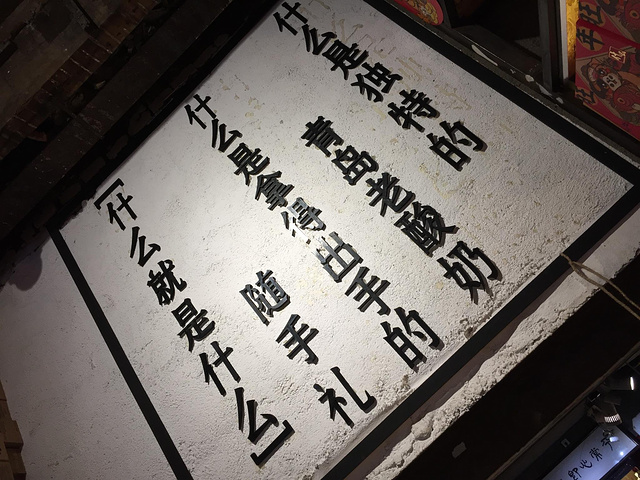 什么是独特的
青岛老酸奶
什么是拿得出手的
随手礼
「什么就是什么」